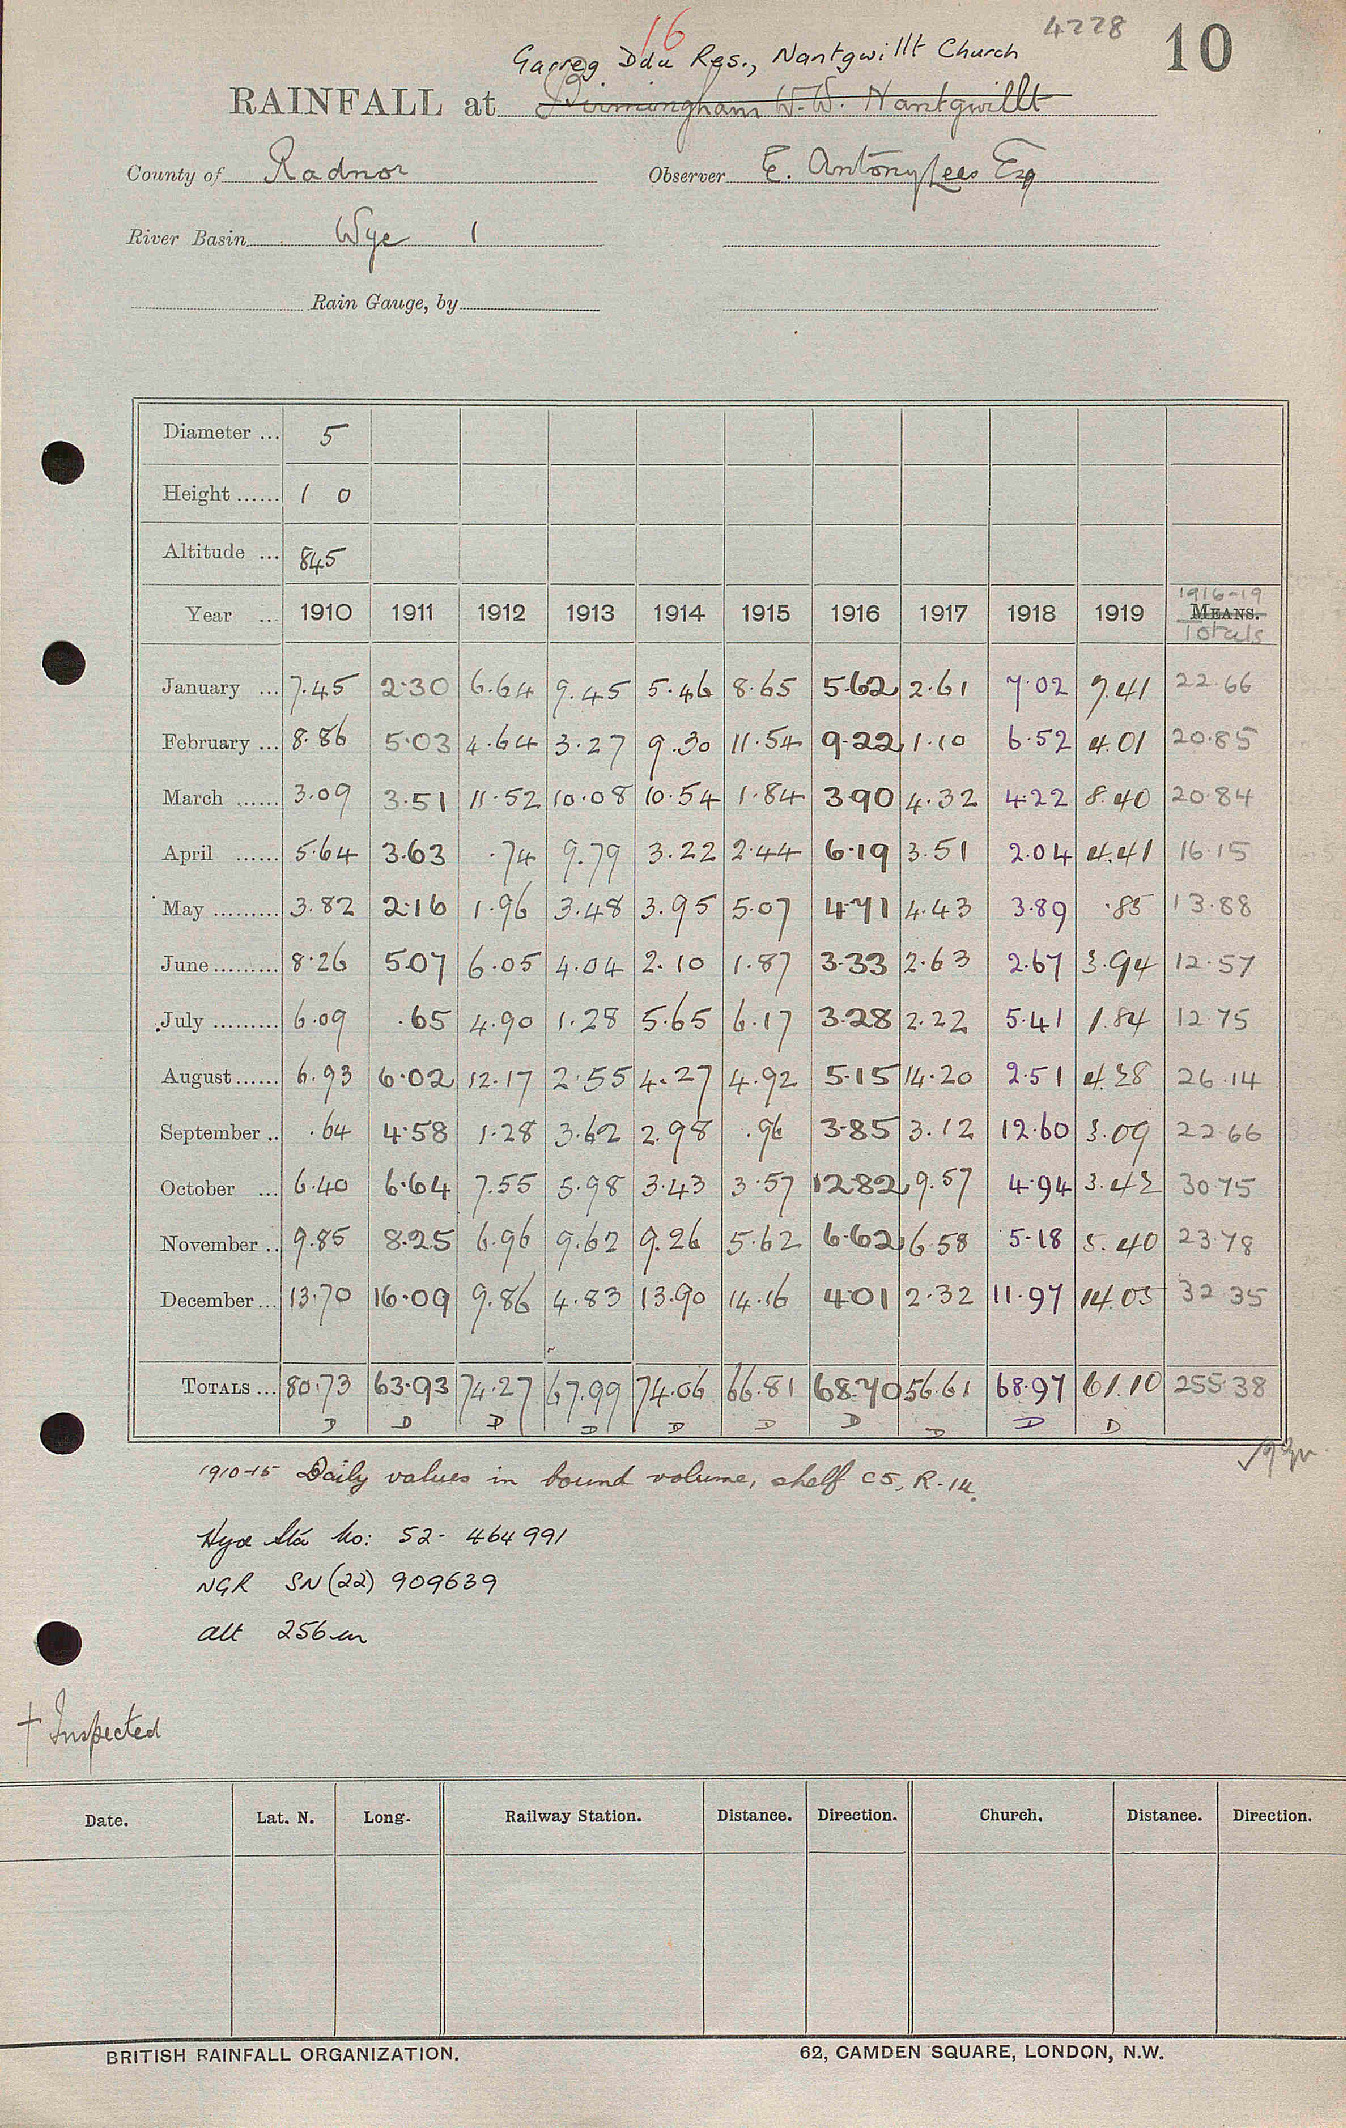 16
4228
10
Garreg Ddu Res., Nantgwillt Church
RAINFALL at Birmingham W.W. Nantgwillt
County of Radnor Observer E. Antony Lees Esq
River Basin Wye 1
Rain Gauge, by
Diameter ... 5
Height ...... 1 0
Altitude ... 845
1916-19
Year ... 1910 1911 1912 1913 1914 1915 1916 1917 1918 1919 MEANS.
Totals
January ... 7.45 2.30 6.64 9.45 5.46 8.65 5.62 2.61 7.02 7.41 22.66
February ... 8.86 5.03 4.64 3.27 9.30 11.54 9.22 1.10 6.52 4.01 20.85
March ...... 3.09 3.51 11.52 10.08 10.54 1.84 3.90 4.32 4.22 8.40 20.84
April ...... 5.64 3.63 .74 9.79 3.22 2.44 6.19 3.51 2.04 4.41 16.15
May ......... 3.82 2.16 1.96 3.48 3.95 5.07 4.71 4.43 3.89 .85 13.88
June ......... 8.26 5.07 6.05 4.04 2.10 1.87 3.33 2.63 2.67 3.94 12.57
July ......... 6.09 .65 4.90 1.28 5.65 6.17 3.28 2.22 5.41 1.84 12.75
August ...... 6.93 6.02 12.17 2.55 4.27 4.92 5.15 14.20 2.51 4.28 26.14
September .. .64 4.58 1.28 3.62 2.98 .96 3.85 3.12 12.60 3.09 22.66
October ... 6.40 6.64 7.55 5.98 3.43 3.57 12.82 9.57 4.94 3.42 30.75
November .. 9.85 8.25 6.96 9.62 9.26 5.62 6.62 6.58 5.18 5.40 23.78
December ... 13.70 16.09 9.86 4.83 13.90 14.16 4.01 2.32 11.97 14.05 32.35
TOTALS ... 80.73 63.93 74.27 67.99 74.06 66.81 68.70 56.61 68.97 61.10 255.38
D D D D D D D D D D
1910-15 Daily values in bound volume, shelf C5, R-14.
Wye Sta No: 52- 464991
NGR SN (22) 909639
alt 256 m
† Inspected
Date. Lat. N. Long. Railway Station. Distance. Direction. Church. Distance. Direction.
BRITISH RAINFALL ORGANIZATION. 62, CAMDEN SQUARE, LONDON, N.W.